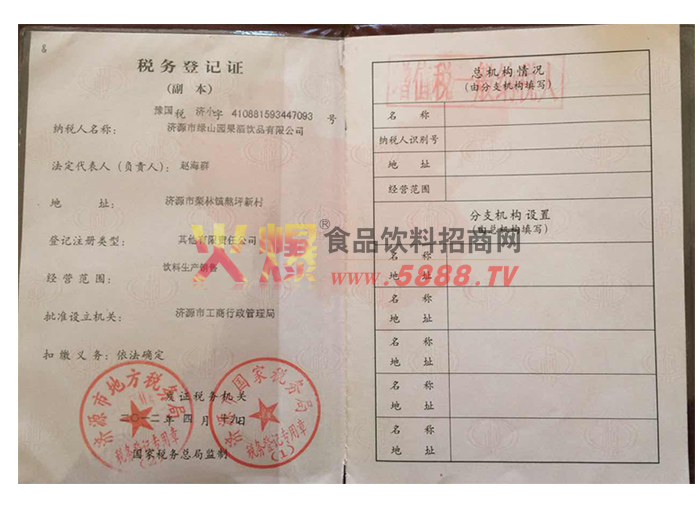 税务登记证
(副本)
豫国税 济小字 410881593447093 号
纳税人名称: 济源市绿山园果脂饮品有限公司
法定代表人(负责人): 赵海群
地 址: 济源市梨林镇熬坪新村
登记注册类型: 其他有限责任公司
经营范围: 饮料生产销售
批准设立机关: 济源市工商行政管理局
扣缴义务: 依法确定
发证税务机关
二〇一二年四月十九日
国家税务总局监制
济源市地方税务局
税务登记专用章
济源国家税务局
税务登记专用章
(1)
增值税一般纳税人
总机构情况
(由分支机构填写)
名 称
纳税人识别号
地 址
经营范围
分支机构设置
(由总机构填写)
名 称
地 址
名 称
地 址
名 称
地 址
名 称
地 址
名 称
地 址
火爆®食品饮料招商网
www.5888.TV